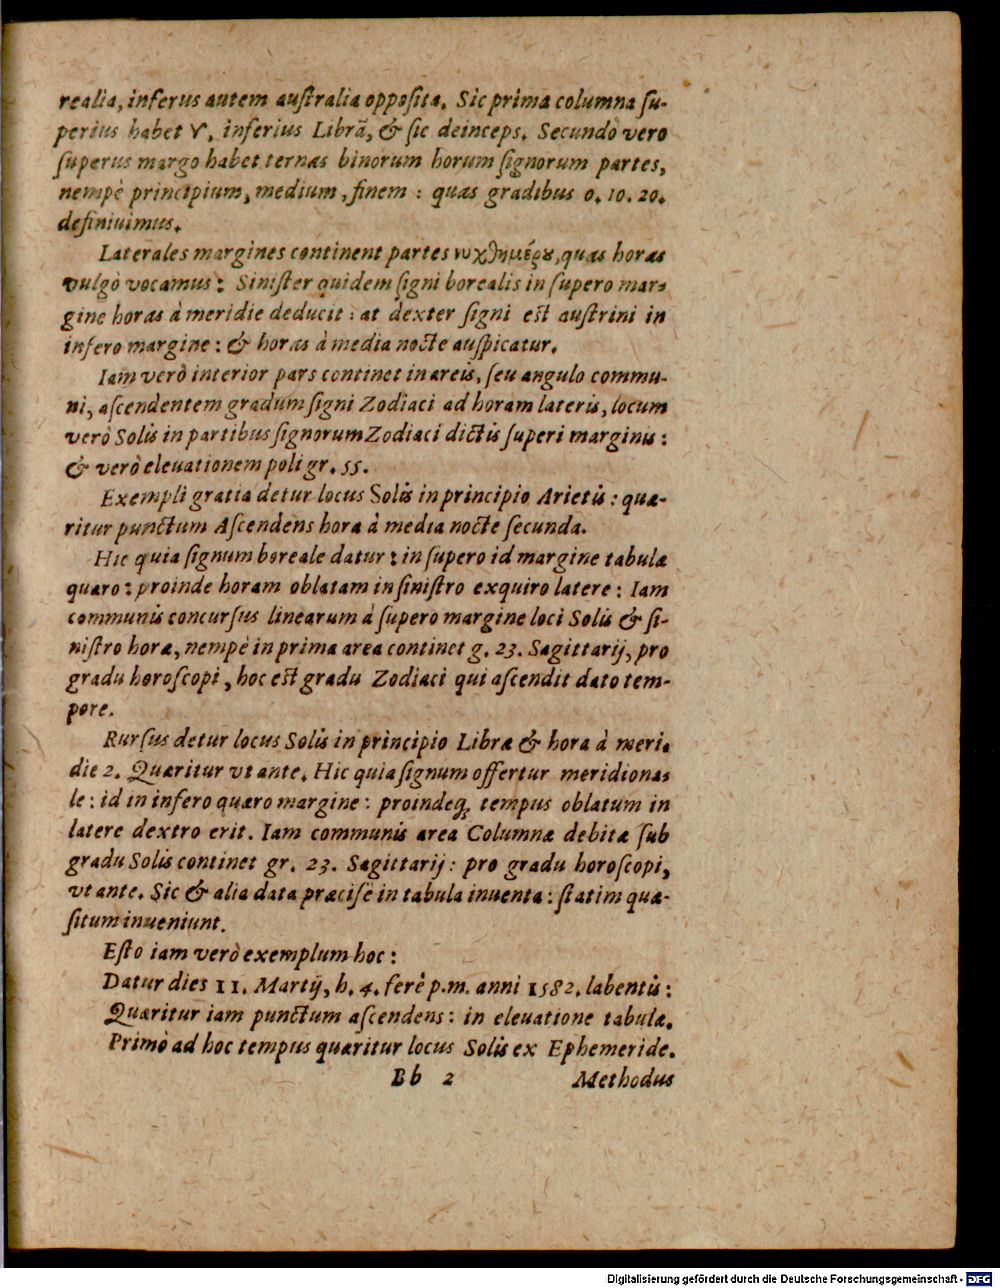 realia, inferus autem australia opposita. Sic prima columna su-
perius habet ♈, inferius Librā, & sic deinceps. Secundò vero
superus margo habet ternas binorum horum signorum partes,
nempè principium, medium, finem : quas gradibus 0. 10. 20.
definiuimus.
Laterales margines continent partes νυχθημέρȣ, quas horas
vulgò vocamus : Sinister quidem signi borealis in supero mar-
gine horas à meridie deducit : at dexter signi est austrini in
infero margine : & horas à media nocte auspicatur.
Iam verò interior pars continet in areis, seu angulo commu-
ni, ascendentem gradum signi Zodiaci ad horam lateris, locum
verò Solis in partibus signorum Zodiaci dictis superi marginis :
& verò eleuationem poli gr. 55.
Exempli gratia detur locus Solis in principio Arietis : quæ-
ritur punctum Ascendens hora à media nocte secunda.
Hic quia signum boreale datur : in supero id margine tabulæ
quæro : proinde horam oblatam in sinistro exquiro latere : Iam
communis concursus linearum à supero margine loci Solis & si-
nistro horæ, nempè in prima area continet g. 23. Sagittarij, pro
gradu horoscopi, hoc est gradu Zodiaci qui ascendit dato tem-
pore.
Rursus detur locus Solis in principio Libræ & hora à meri-
die 2. Quæritur vt ante. Hic quia signum offertur meridiona-
le : id in infero quæro margine : proindeq; tempus oblatum in
latere dextro erit. Iam communis area Columnæ debitæ sub
gradu Solis continet gr. 23. Sagittarij : pro gradu horoscopi,
vt ante. Sic & alia data præcisè in tabula inuenta : statim quæ-
situm inueniunt.
Esto iam verò exemplum hoc :
Datur dies 11. Martij, h. 4. ferè p.m. anni 1582. labentis :
Quæritur iam punctum ascendens : in eleuatione tabulæ.
Primò ad hoc tempus quæritur locus Solis ex Ephemeride.
Bb 2 Methodus
Digitalisierung gefördert durch die Deutsche Forschungsgemeinschaft - DFG